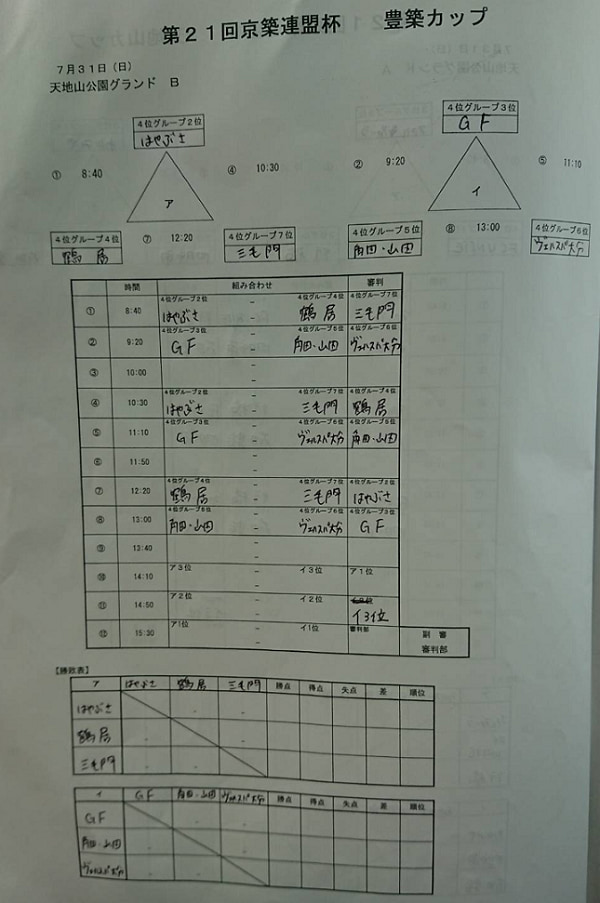 第２１回京築連盟杯　　豊築カップ
７月３１日（日）
天地山公園グランド　B
４位グループ２位
はやぶさ
４位グループ３位
GF
① 8:40
④ 10:30
② 9:20
⑤ 11:10
ア
イ
４位グループ４位
鶴居
⑦ 12:20
４位グループ７位
三毛門
４位グループ５位
角田・山田
⑧ 13:00
４位グループ６位
ヴェルスパ大分
時間 組み合わせ 審判
４位グループ２位 ４位グループ４位 ４位グループ７位
① 8:40 はやぶさ － 鶴居 三毛門
４位グループ３位 ４位グループ５位 ４位グループ６位
② 9:20 GF － 角田・山田 ヴェルスパ大分
③ 10:00 －
４位グループ２位 ４位グループ７位 ４位グループ４位
④ 10:30 はやぶさ － 三毛門 鶴居
４位グループ３位 ４位グループ６位 ４位グループ５位
⑤ 11:10 GF － ヴェルスパ大分 角田・山田
⑥ 11:50 －
４位グループ４位 ４位グループ７位 ４位グループ２位
⑦ 12:20 鶴居 － 三毛門 はやぶさ
４位グループ５位 ４位グループ６位 ４位グループ３位
⑧ 13:00 角田・山田 － ヴェルスパ大分 GF
⑨ 13:40 －
⑩ 14:10 ア３位 － イ３位 ア１位
⑪ 14:50 ア２位 － イ２位 イ３位
⑫ 15:30 ア1位 － イ1位 審判部
副審
審判部
【勝敗表】
ア はやぶさ 鶴居 三毛門 勝点 得点 失点 差 順位
はやぶさ
鶴居
三毛門
イ GF 角田・山田 ヴェルスパ大分 勝点 得点 失点 差 順位
GF
角田・山田
ヴェルスパ大分